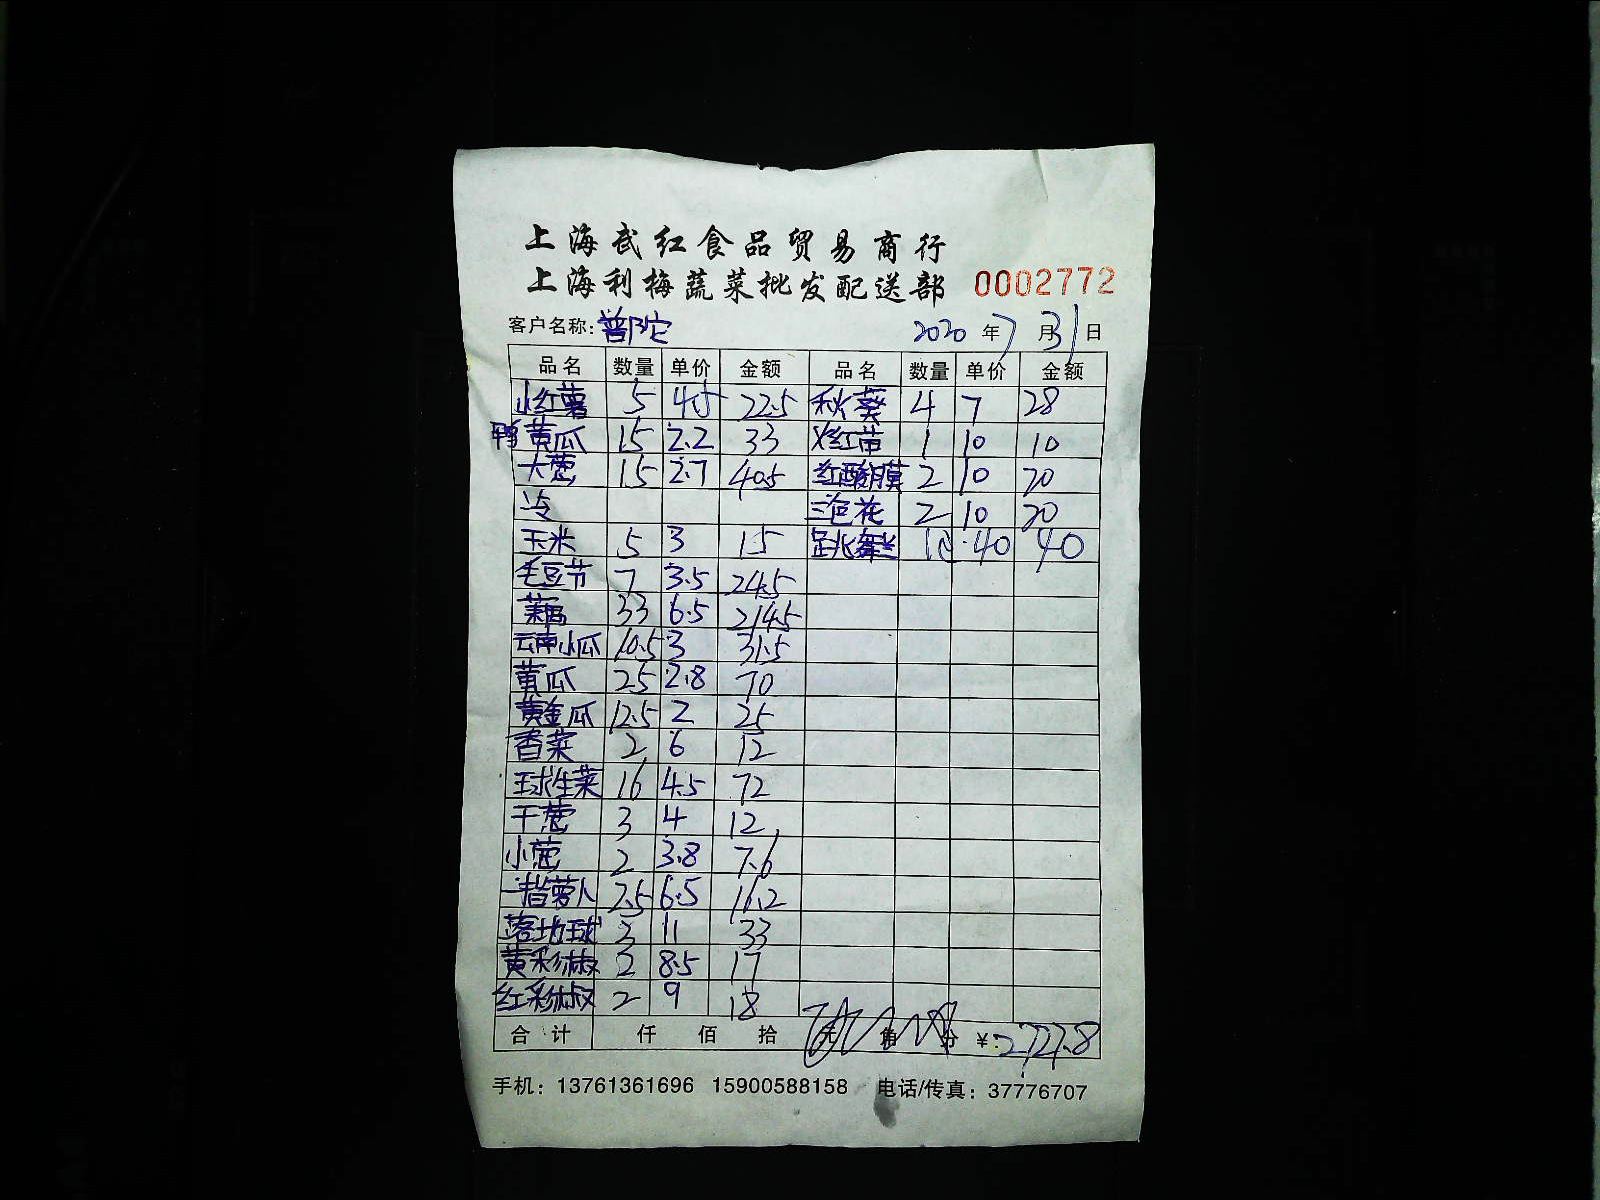 上海武红食品贸易商行
上海利梅蔬菜批发配送部 0002772
客户名称: 普陀 2020 年 7 月 31 日
品名 数量 单价 金额 品名 数量 单价 金额
小红薯 5 4.5 22.5 秋葵 4 7 28
黄瓜 15 2.2 33 红苗 1 10 10
大葱 15 2.7 40.5 红酸膜 2 10 20
冷 三色花 2 10 20
玉米 5 3 15 跳舞兰 40 40
毛豆节 7 3.5 24.5
33 6.5 214.5
云南小瓜 10.5 3 31.5
黄瓜 25 2.8 70
黄金瓜 12.5 2 25
香菜 2 6 12
球生菜 16 4.5 72
干葱 3 4 12
小葱 2 3.8 7.6
一指萝卜 2.5 6.5 16.2
落地球 3 11 33
黄彩椒 2 8.5 17
红彩椒 2 9 18
合 计 仟 佰 拾 元 角 分 ¥:
手机: 13761361696 15900588158 电话/传真: 37776707